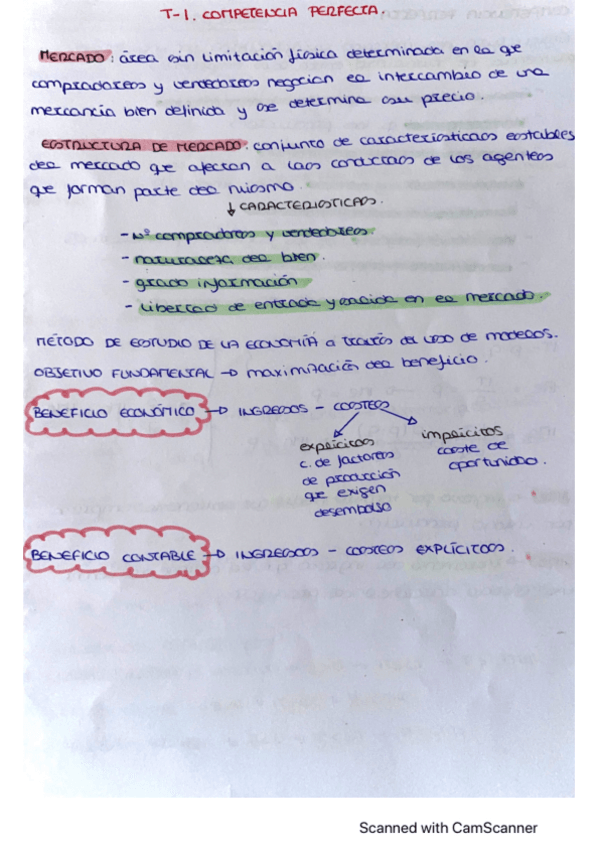 T-1. COMPETENCIA PERFECTA.
MERCADO: área sin limitación física determinada en la que
compradores y vendedores negocian el intercambio de una
mercancía bien definida y se determina su precio.
ESTRUCTURA DE MERCADO: conjunto de características estables
del mercado que afectan a las conductas de los agentes
que forman parte del mismo.
↓ CARACTERÍSTICAS.
- Nº compradores y vendedores
- naturaleza del bien.
- grado información
- libertad de entrada y salida en el mercado.
MÉTODO DE ESTUDIO DE LA ECONOMÍA a través del uso de modelos.
OBJETIVO FUNDAMENTAL → maximización del beneficio.
BENEFICIO ECONÓMICO → INGRESOS - COSTES
explícitos
c. de factores
de producción
que exigen
desembolso
implícitos
coste de
oportunidad.
BENEFICIO CONTABLE → INGRESOS - COSTES EXPLÍCITOS.
Scanned with CamScanner